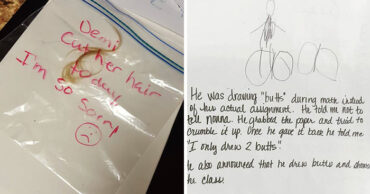 Demi
Cut her hair
today
I'm so sorry
He was drawing "butts" during math instead
of his actual assignment. He told me not to
tell nonna. He grabbed the paper and tried to
crumble it up. Once he gave it back he told me
"I only drew 2 butts"
He also announced that he drew butts and
the class